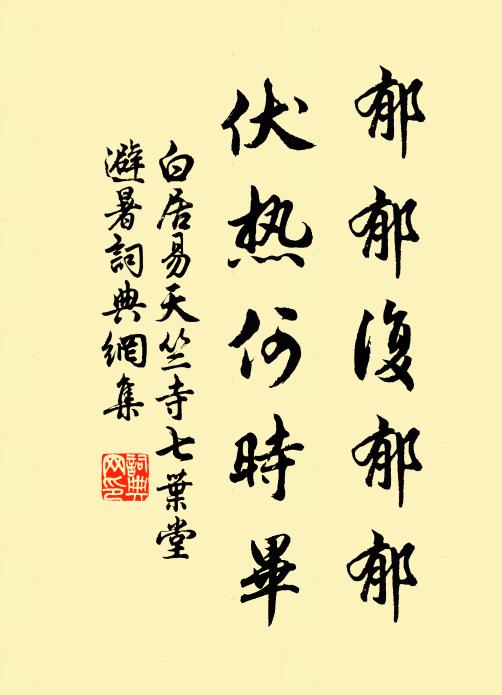 郁郁復郁郁
伏热何時畢
白居易天竺寺七葉堂
避暑詞典網集
詞典网印